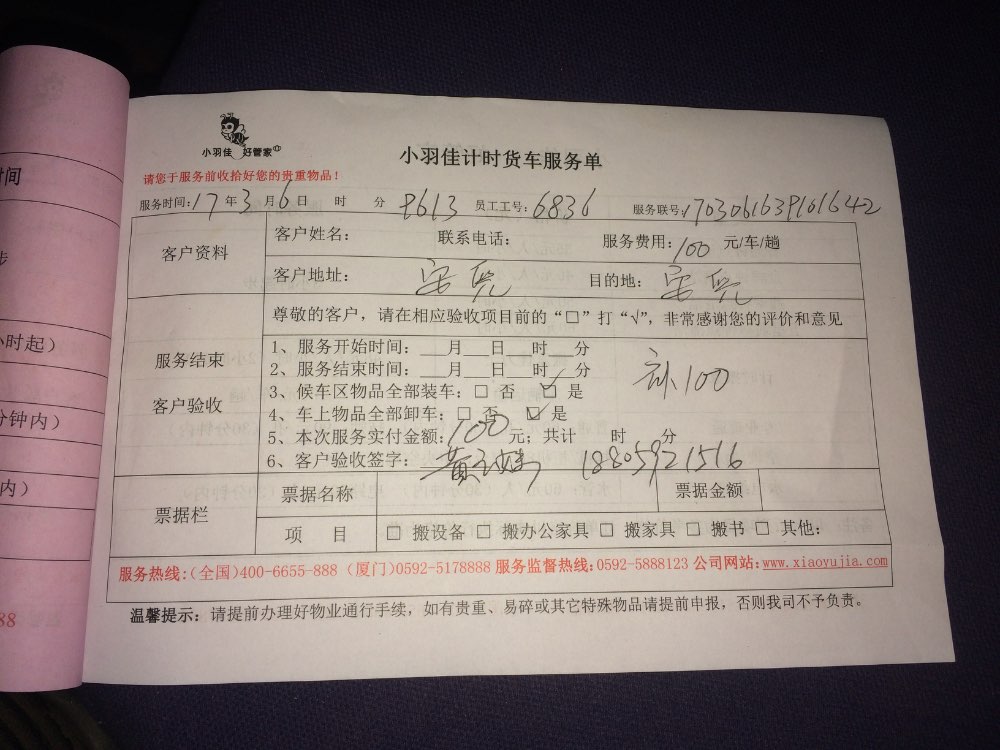 小羽佳 好管家
小羽佳计时货车服务单
请您于服务前收拾好您的贵重物品！
服务时间:17年3月6日 时 分 8613 员工工号:6836 服务联号:1703061639101642
客户资料
客户姓名: 联系电话: 服务费用:100 元/车/趟
客户地址: 目的地:
尊敬的客户，请在相应验收项目前的“□”打“√”，非常感谢您的评价和意见
服务结束
客户验收
1、服务开始时间: 月 日 时 分
2、服务结束时间: 月 日 时 分 补100
3、候车区物品全部装车:□ 否 ☑ 是
4、车上物品全部卸车:□ 否 ☑ 是
5、本次服务实付金额:100元；共计 时 分
6、客户验收签字: 18805921516
票据栏
票据名称 票据金额
项 目 □ 搬设备 □ 搬办公家具 □ 搬家具 □ 搬书 □ 其他:
服务热线:(全国)400-6655-888 (厦门)0592-5178888 服务监督热线:0592-5888123 公司网站:www.xiaoyujia.com
温馨提示: 请提前办理好物业通行手续，如有贵重、易碎或其它特殊物品请提前申报，否则我司不予负责。
时间
小时起）
分钟内）
内）
88